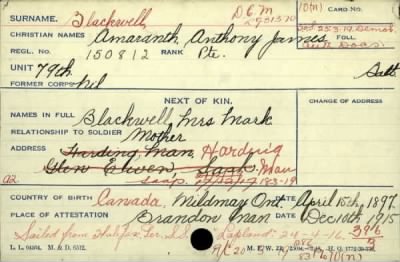 SURNAME. Blackwell D.C.M 10(m) CARD NO.
CHRISTIAN NAMES Amaranth Anthony James FOLL.
REGL. NO. 150812 RANK Pte.
UNIT 79th Batt
FORMER CORPS Nil
NEXT OF KIN. CHANGE OF ADDRESS
NAMES IN FULL Blackwell, Mrs Mark
RELATIONSHIP TO SOLDIER Mother
ADDRESS Harding Man, Harding
Glen Ewen, Sask. Man
COUNTRY OF BIRTH Canada, Mildmay Ont DATE April 15th, 1897
PLACE OF ATTESTATION Brandon Man DATE Dec 10th, 1915
Sailed from Halifax Per. S.S. "Lapland" 24-4-16. 396
L. L. M. & D. M. F. W. H. Q.